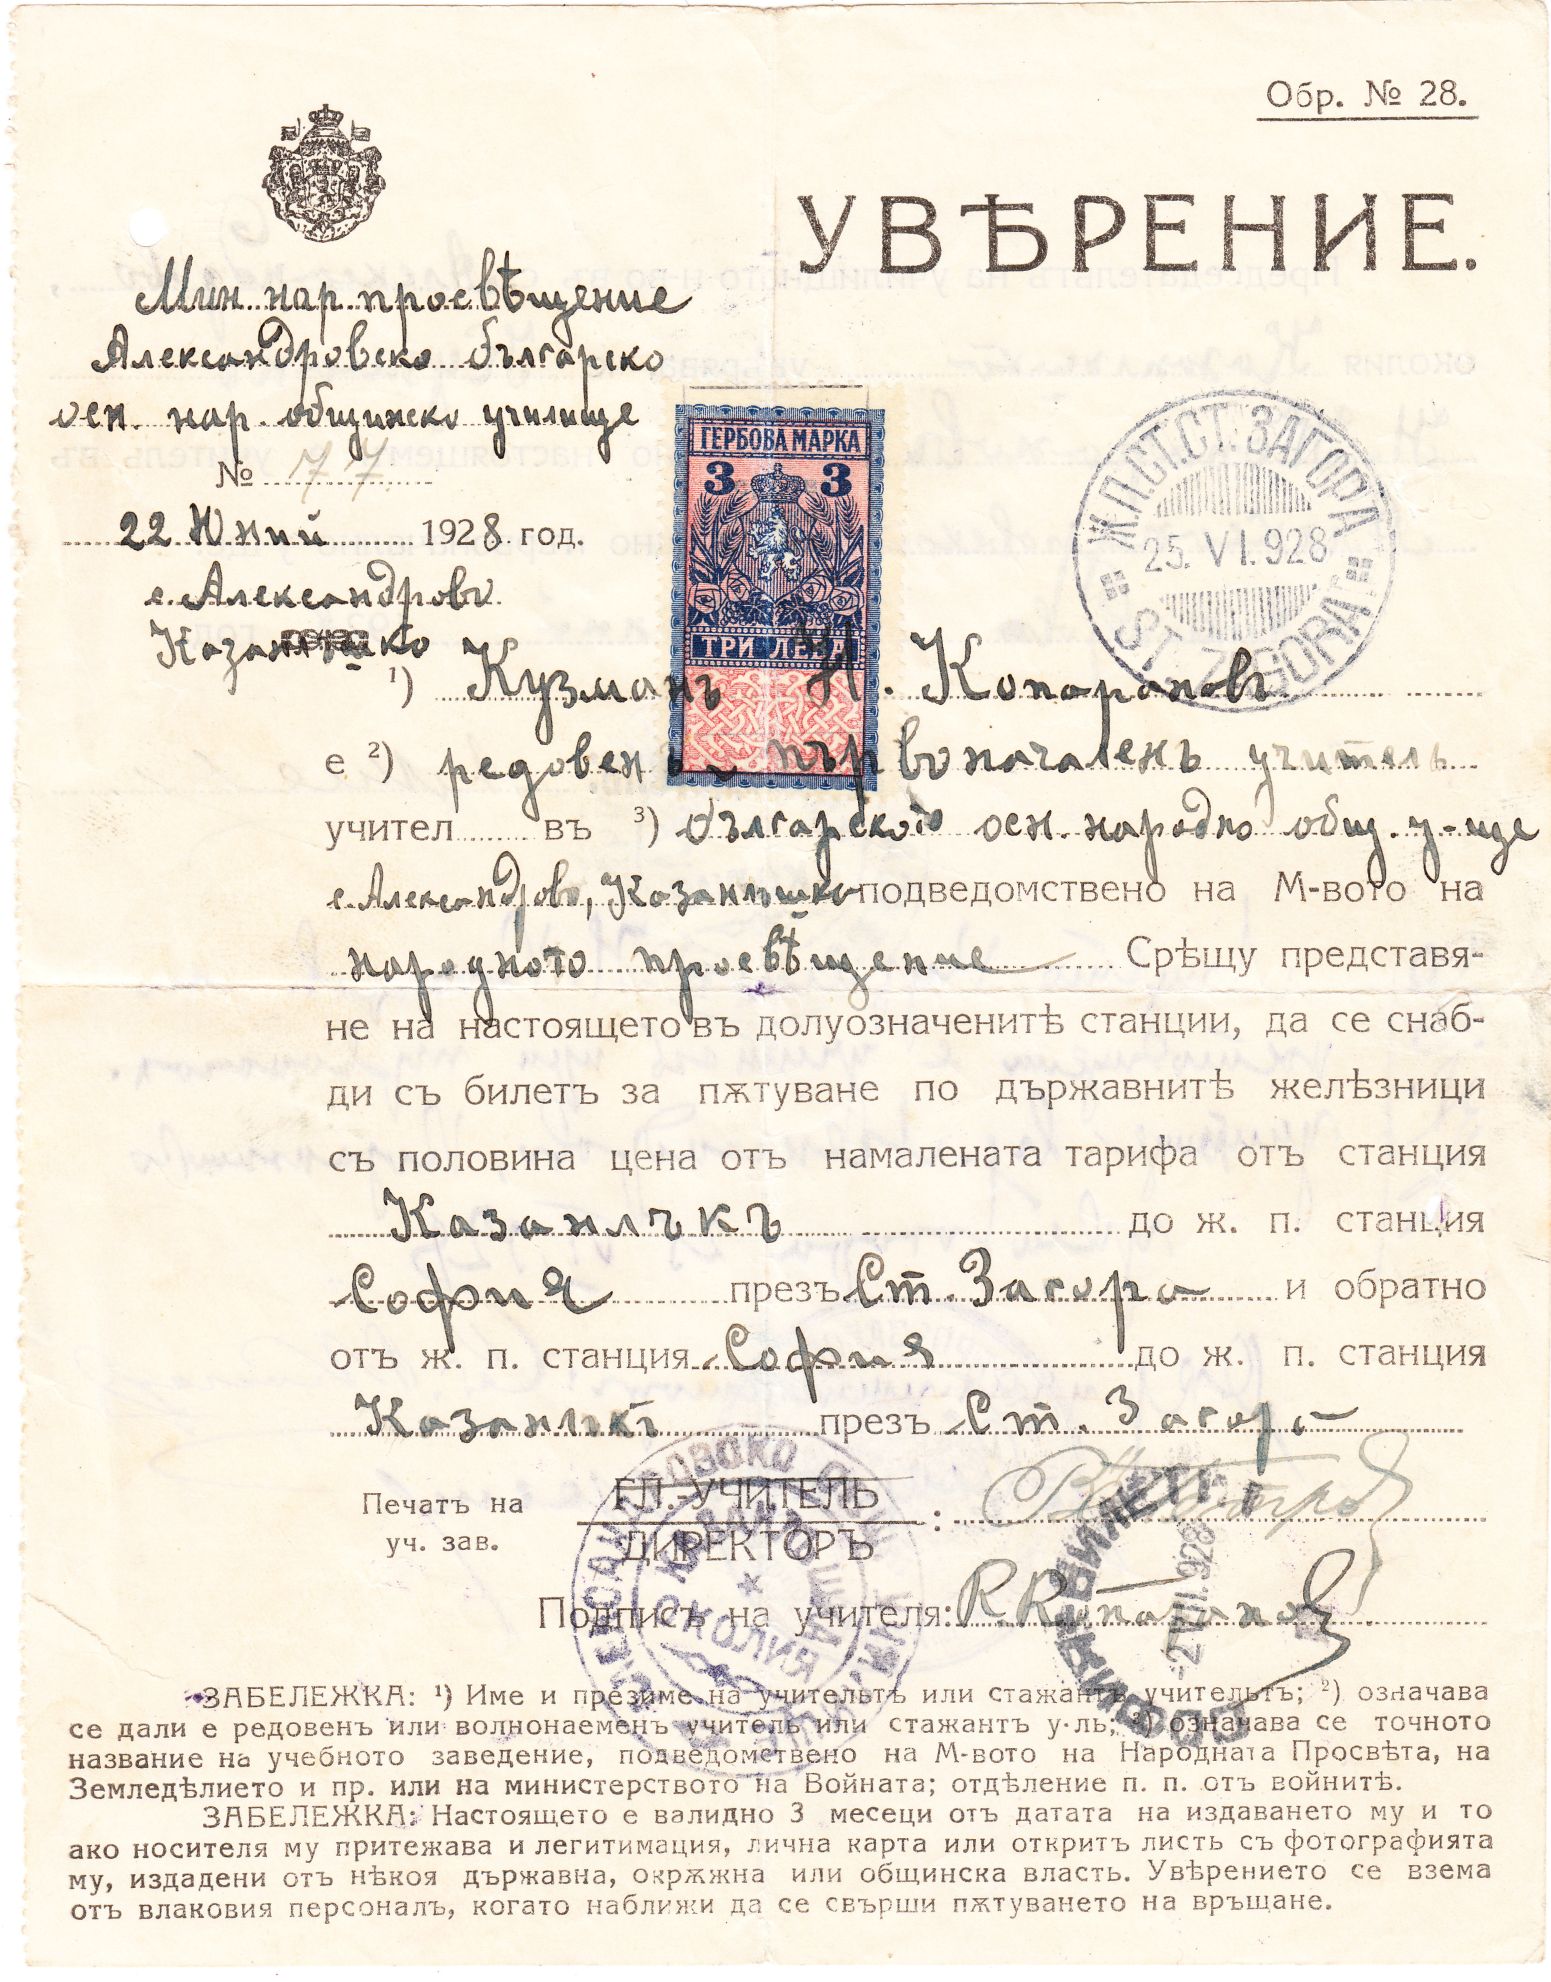 Обр. № 28.
УВѢРЕНИЕ.
Мин. нар. просвѣщение
Александровско българско
осн. нар. общинско училище
№ 77
22 Юний 1928 год.
с. Александрово
Казанлъшко
ГЕРБОВА МАРКА
3 3
ТРИ ЛЕВА
Ж.П.СТ.СТ. ЗАГОРА
25. VI. 928
ST. ZAGORA
¹) Кузманъ Н. Копарановъ
е ²) редовенъ първоначаленъ учитель
учител въ ³) българското осн. народно общ. у-ще
с. Александрово, Казанлъшко подведомствено на М-вото на
народното просвѣщение Срѣщу представя-
не на настоящето въ долуозначенитѣ станции, да се снаб-
ди съ билетъ за пѫтуване по държавнитѣ желѣзници
съ половина цена отъ намалената тарифа отъ станция
Казанлъкъ до ж. п. станция
София презъ Ст. Загора и обратно
отъ ж. п. станция София до ж. п. станция
Казанлъкъ презъ Ст. Загора
Печатъ на
уч. зав.
ГЛ.-УЧИТЕЛЬ
ДИРЕКТОРЪ :
Подписъ на учителя:
КАЗАНЛЪШКА
ОКОЛИЯ
СОФИЯ-БИЛЕТИ
-2 VII. 928
ЗАБЕЛЕЖКА: ¹) Име и презиме на учительтъ или стажантъ учительтъ; ²) означава
се дали е редовенъ или волнонаеменъ учитель или стажантъ у-ль; ³) означава се точното
название на учебното заведение, подведомствено на М-вото на Народната Просвѣта, на
Земледѣлието и пр. или на министерството на Войната; отдѣление п. п. отъ войнитѣ.
ЗАБЕЛЕЖКА: Настоящето е валидно 3 месеци отъ датата на издаването му и то
ако носителя му притежава и легитимация, лична карта или открить листь съ фотографията
му, издадени отъ нѣкоя държавна, окрѫжна или общинска власть. Увѣрението се взема
отъ влаковия персоналъ, когато наближи да се свърши пѫтуването на връщане.